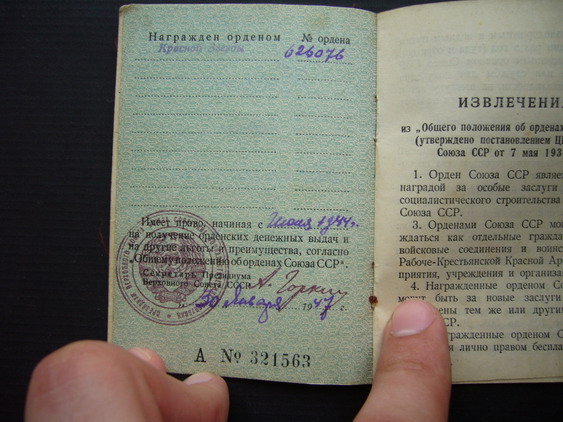 Награжден орденом № ордена
Красной Звезды 626076
Имеет право, начиная с Июня 1944 г.
на получение орденских денежных выдач и
на другие льготы и преимущества, согласно
"Общему положению об орденах Союза ССР".
Секретарь Президиума
Верховного Совета СССР А. Горкин
30 Января 1947 г.
А № 321563
ИЗВЛЕЧЕНИ
из „Общего положения об орденах
(утверждено постановлением Ц
Союза ССР от 7 мая 193
1. Орден Союза ССР являе
наградой за особые заслуги
социалистического строительства
Союза ССР.
3. Орденами Союза ССР мо
ждаться как отдельные граждан
войсковые соединения и воинск
Рабоче-Крестьянской Красной Ар
приятия, учреждения и организа
4. Награжденные орденом Со
может быть за новые заслуги
ены тем же или другим
ССР.
гражденные орденом С
я лично правом беспла